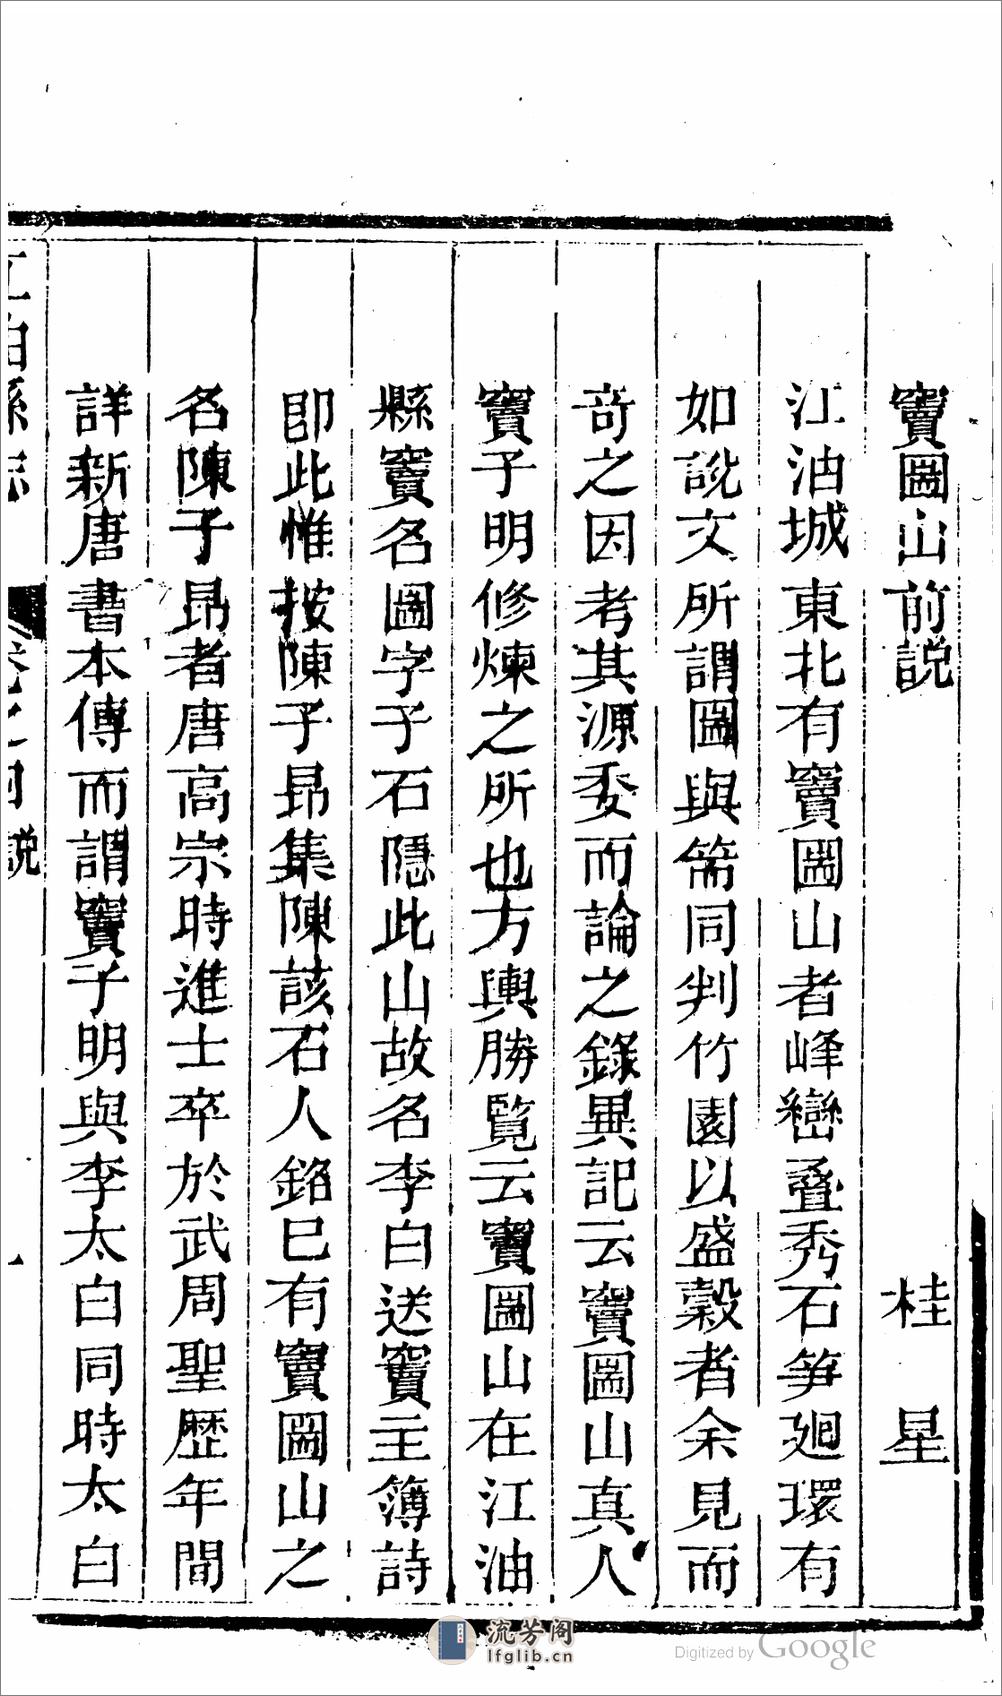 竇圌山前説 桂星
江油城東北有竇圌山者峰巒叠秀石笋廻環有
如說文所謂圌與篅同判竹圜以盛穀者余見而
奇之因考其源委而論之錄異記云竇圌山真人
竇子明修煉之所也方輿勝覧云竇圌山在江油
縣竇名圌字子石隱此山故名李白送竇主簿詩
卽此惟按陳子昻集陳該石人銘巳有竇圌山之
名陳子昻者唐高宗時進士卒於武周聖歴年間
詳新唐書本傳而謂竇子明與李太白同時太白
說
流芳阁
lfglib.cn
Digitized by Google